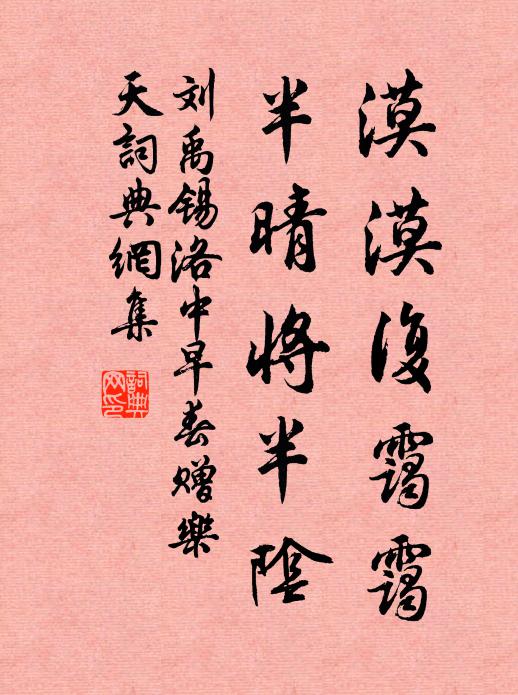 漠漠復靄靄
半晴將半陰
刘禹锡洛中早春赠樂
天詞典網集
詞典
网印